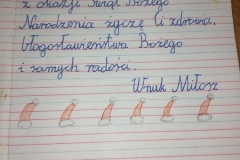 z okazji Świąt Bożego
Narodzenia życzę Ci zdrowia,
błogosławieństwa Bożego
i samych radości.
Wnuk Miłosz